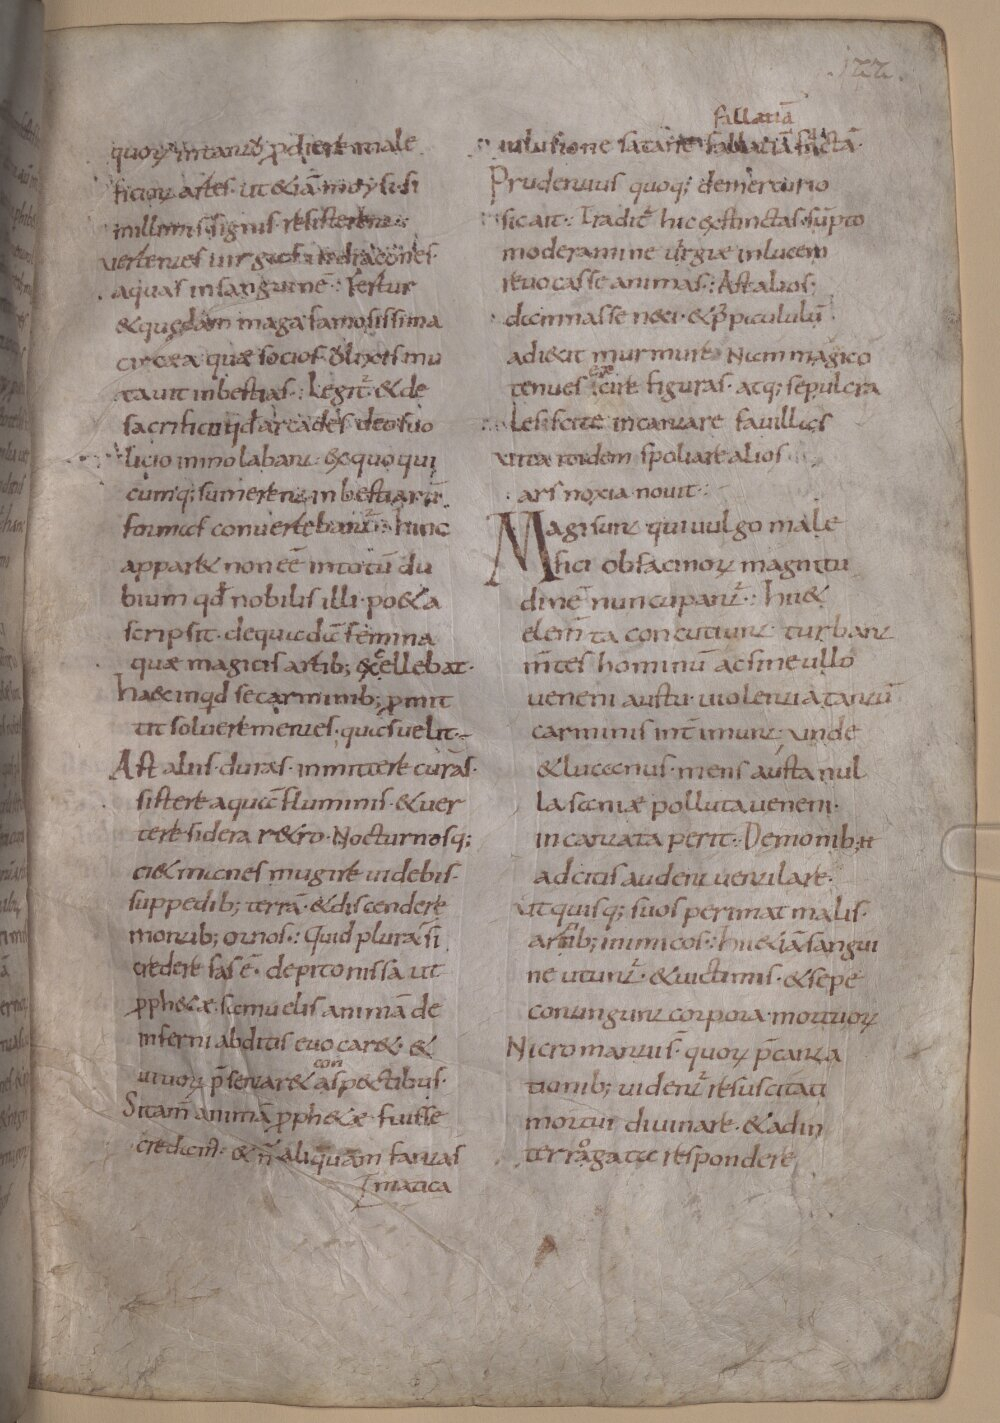 .122.
quoꝝ intantū ꝓdiere male
ficioꝝ artes· ut &iā moysi si
millimis signis resisterent·:
vertentes uirgas in dracones·
aquas insanguinē·: Fertur
& quędam maga famosissima
circæa quæ socios ulixis mu
tauit inbestias·: Legit̄ & de
sacrificio qd̄ arcades deo suo
licio immolabant· ex quo qui
cumq; sumerent in bestiarū
formas convertebant̄·: hunc
appar& non eē intotū du
bium qd̄ nobilis illi· po&a
scripsit· dequadā femina
quæ magicis artib; excellebat·
haec inqd secarminib; ꝓmit
tit soluere mentes· quas uelit·
Ast aliis· duras· inmittere curas·
sistere aquā fluminis· & uer
tere sidera r&ro· Nocturnosq;
ci& manes mugire uidebis·
suppedib; terrā· & discendere
montib; ornos·: Quid plura si
credere fas ē· depitonissa ut
ꝓph&æ· samuelis animā de
inferni abditis euocar&· &
uiuoꝝ p̄sentar& conspectibus·
Si tam̄ animā ꝓph&æ· fuisse
credam̄· & n̄ aliquam fantas
maticā
fallatiā
inlusione satanæ fallatiā factā·
Prudentius quoq; demercurio
sic ait·: Tradit̄ hic extinctas· sūpto
moderamine uirgæ inlucem
reuocasse animas·: Ast alios;
dāmnasse neci· & p̄picululū
adiecit murmure Nam magico
tenues excire figuras· atq; sepulcra
les scite incantare fauillas
uita itidem spoliare alios
ars noxia nouit·
Magi sunt qui uulgo male
fici ob facinoꝝ magnitu
dinē nuncupant̄·: hii &
elem̄ta concutiunt turbant
m̄tes hominū ac sine ullo
ueneni austu· uiolentia tantū
carminis int̄imunt, unde
& lucanus· mens austa nul
la saniæ polluta ueneni·
incantata perit·: Demonib; n̄
adcitis audent uentilare·
ut quisq; suos perimat malis·
artib; inimicos·: hii &iā sangui
ne utunt̄· & uictimis· & sepe
contingunt corpora mortuoꝝ
Nicromantiis· quoꝝ p̄canta
tionib; uident̄ resuscitati
mortui diuinare· & ad in
terrogata respondere